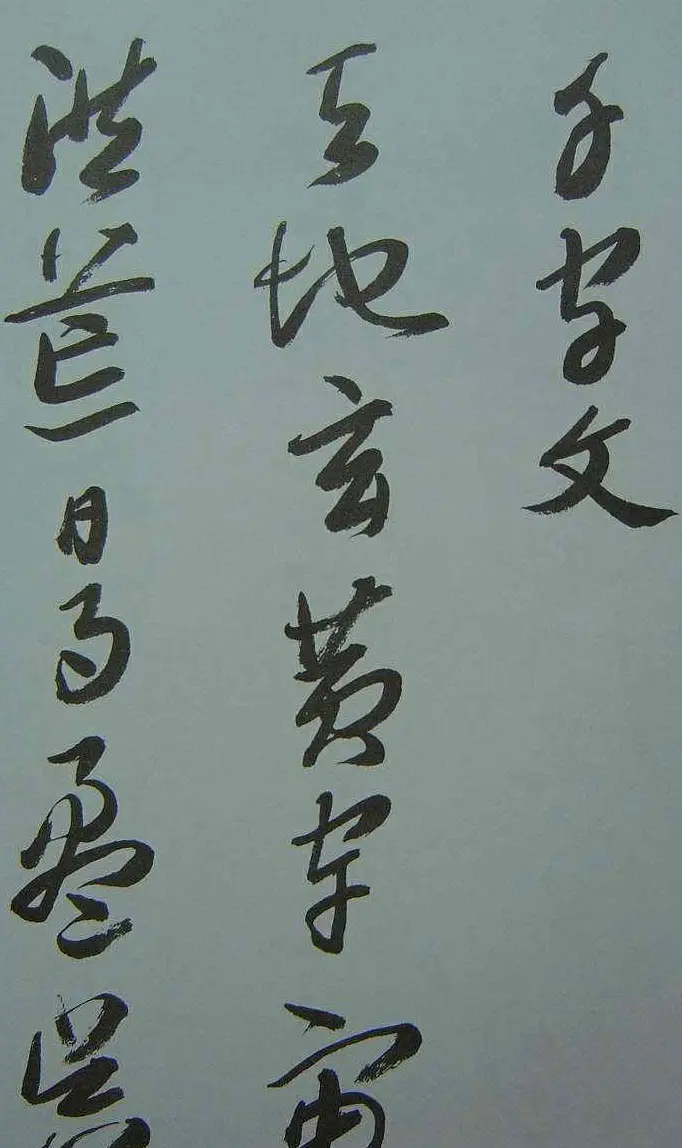 千字文
天地玄黄宇宙
洪荒日月盈昃